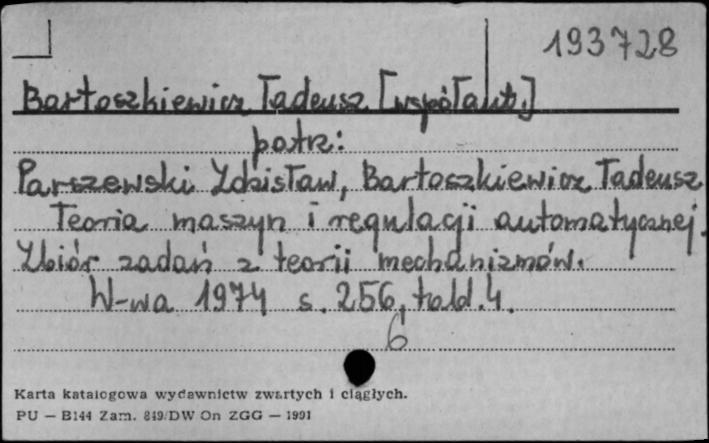 193728
Bartoszkiewicz Tadeusz [współaut.]
patrz:
Parszewski Zdzisław, Bartoszkiewicz Tadeusz
Teoria maszyn i regulacji automatycznej.
Zbiór zadań z teorii mechanizmów.
W-wa 1974 s. 256, tabl. 4.
6
Karta katalogowa wydawnictw zwartych i ciągłych.
PU — B144 Zam. 849/DW On ZGG — 1991